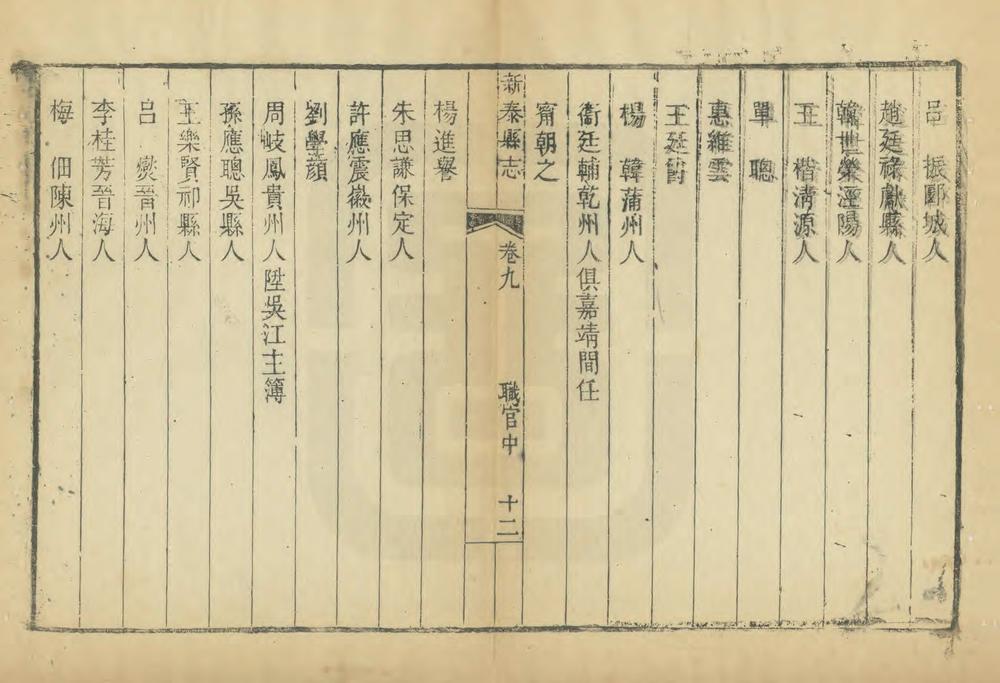 呂　振郾城人
趙廷祿獻縣人
韓世榮涇陽人
王　楷淸源人
單　聰
惠維雲
王廷
楊　韓蒲州人
衞廷輔乾州人俱嘉靖間任
甯朝之
新泰縣志　卷九　職官中　十二
楊進譽
朱思謙保定人
許應震徽州人
劉學顏
周岐鳳貴州人陞吳江主簿
孫應聰吳縣人
王樂賢祁縣人
呂　爕晉州人
李桂芳晉海人
梅　佃陳州人